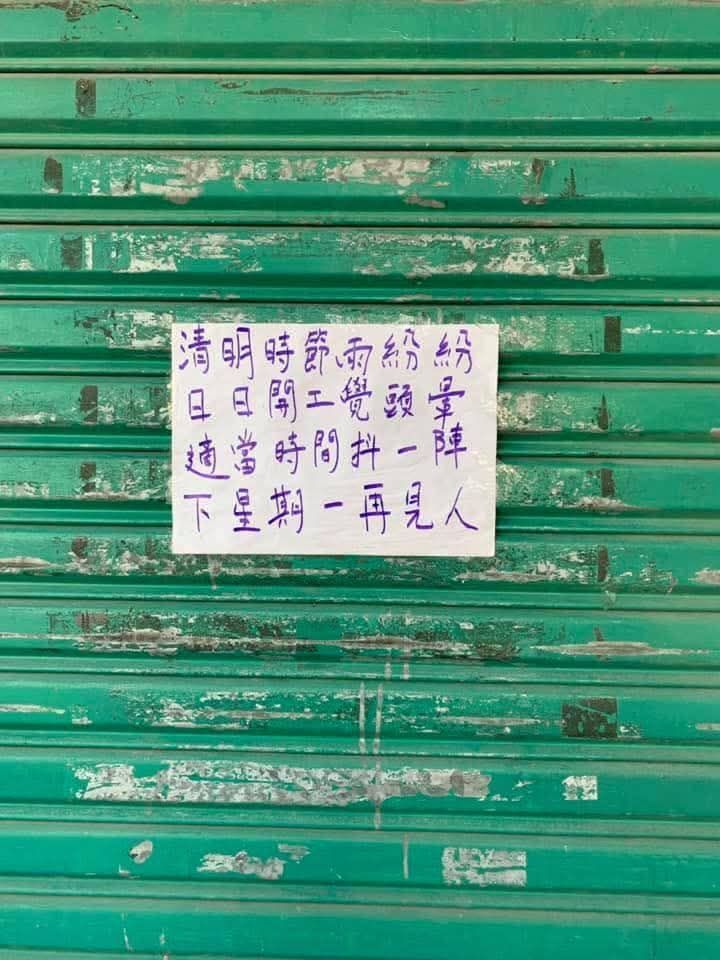 清明時節雨紛紛
日日開工覺頭暈
適當時間抖一陣
下星期一再見人